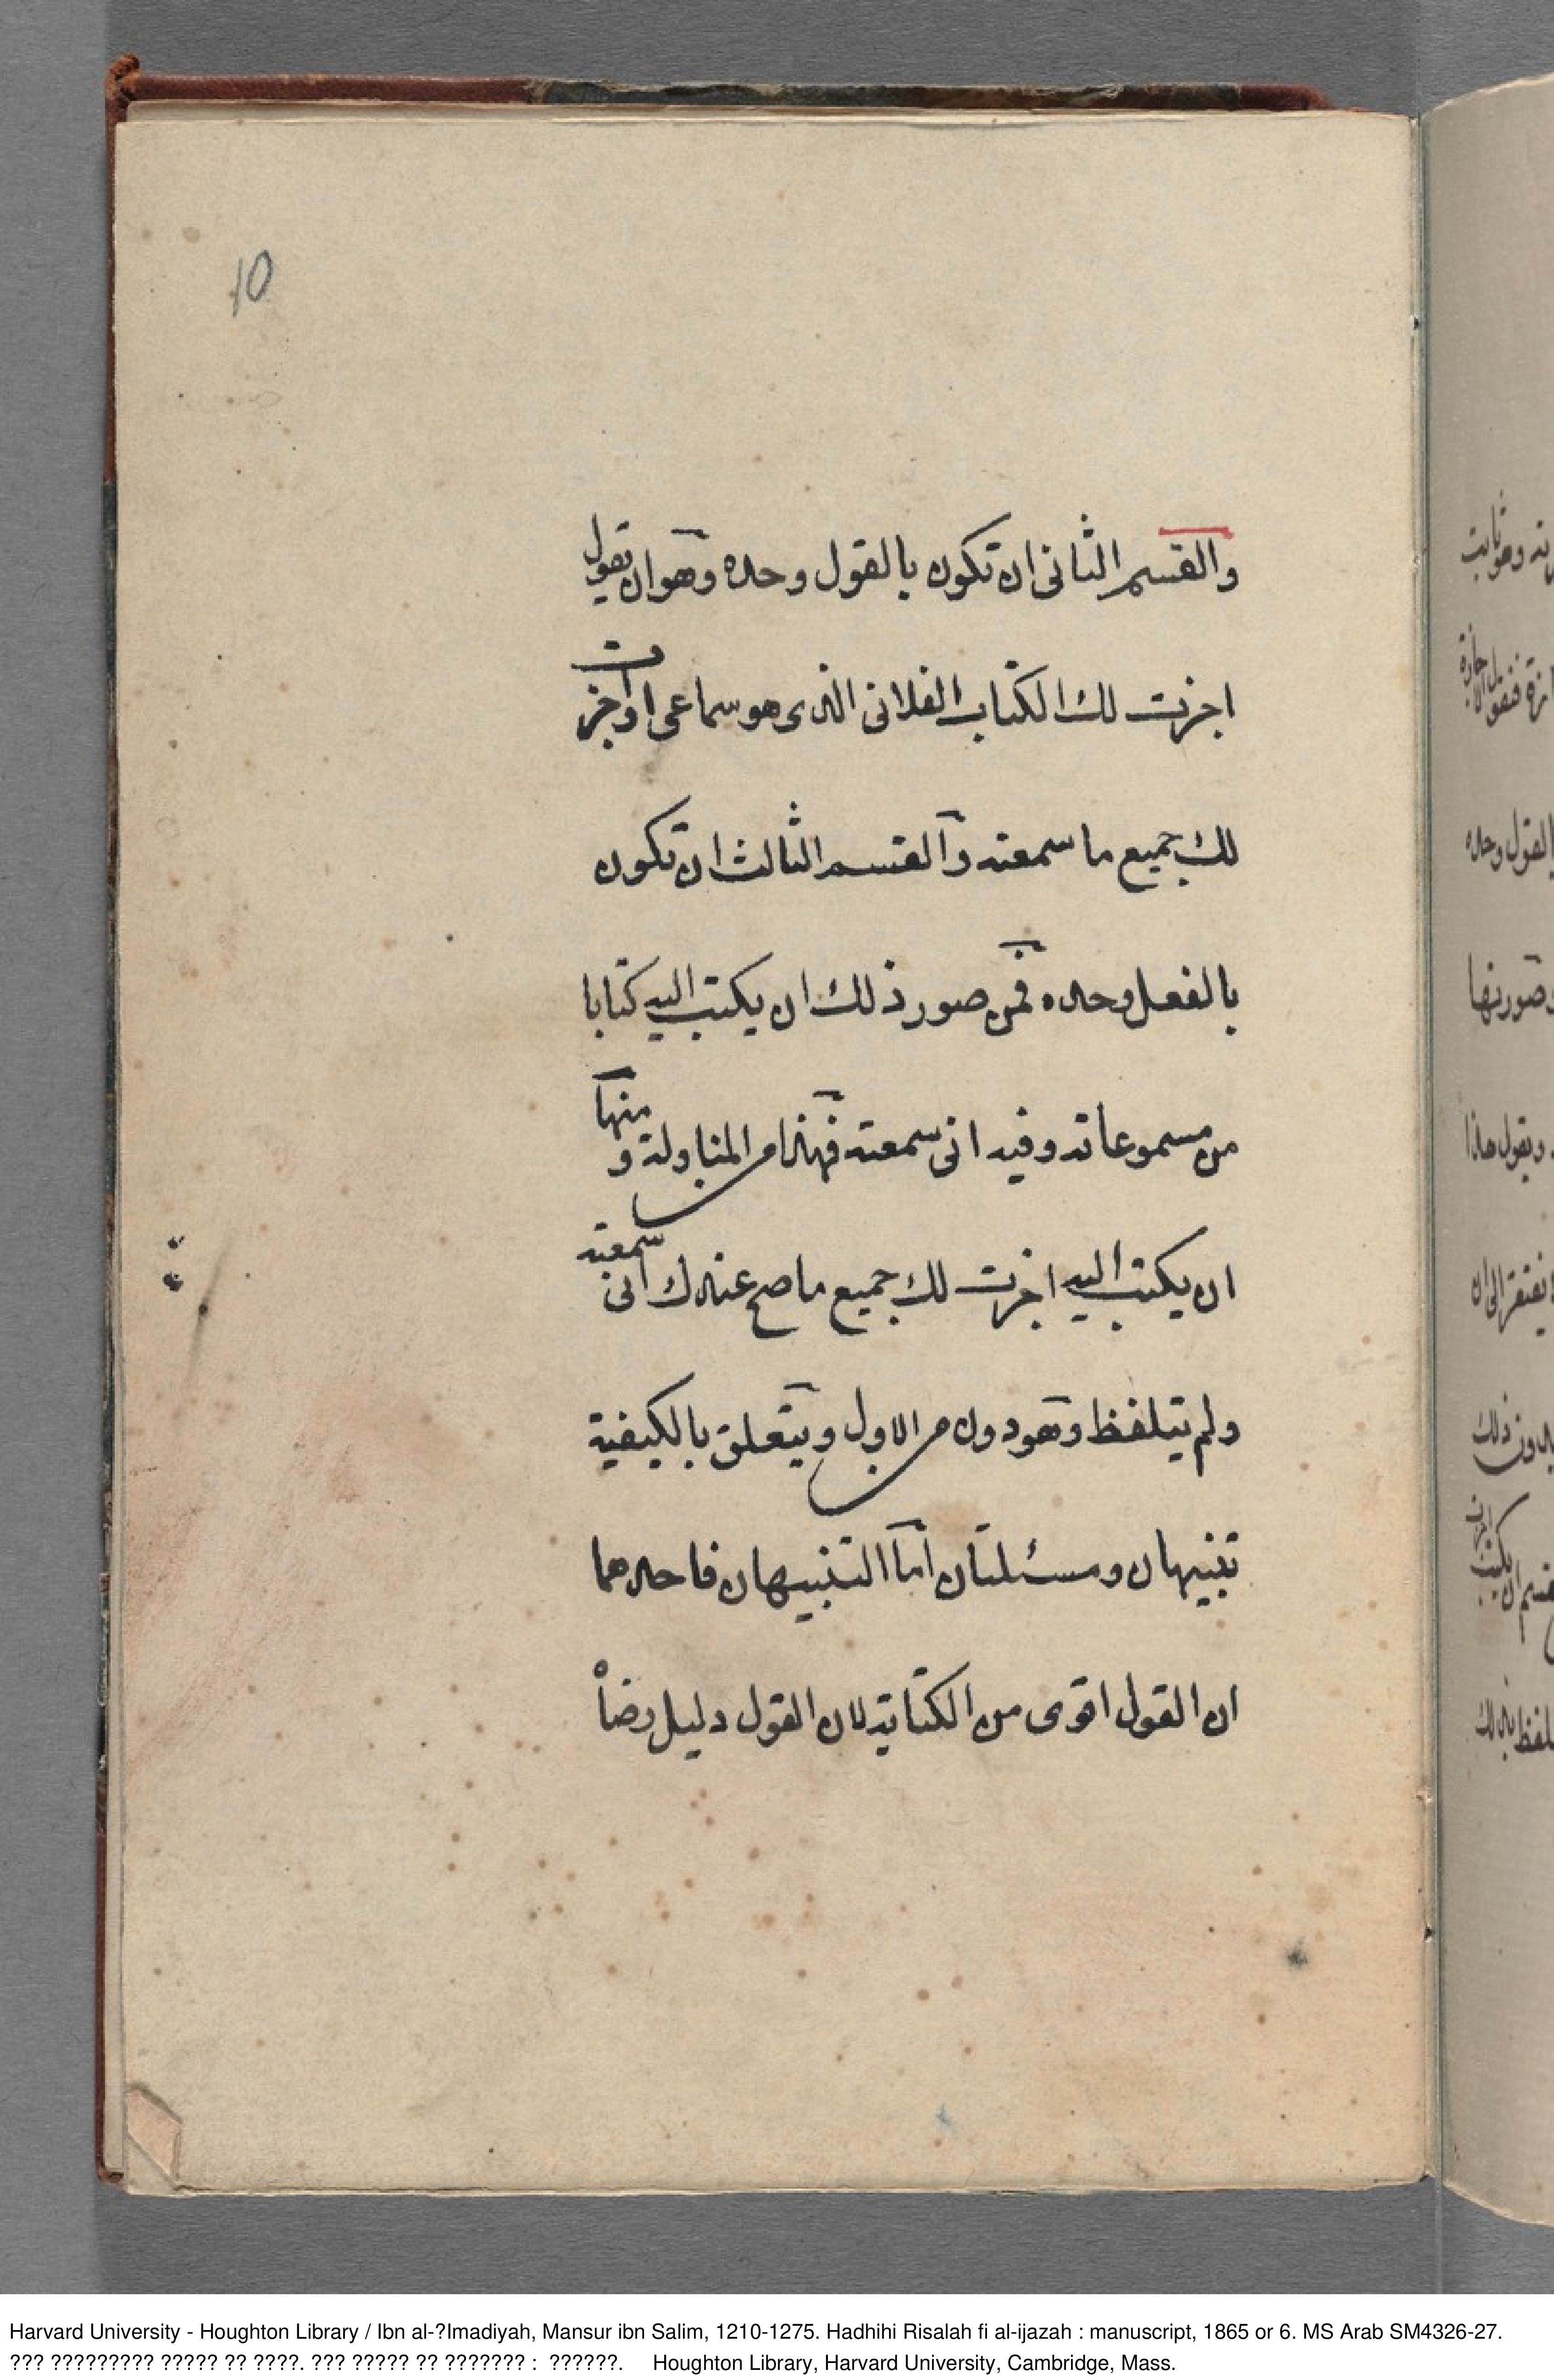 10
والقسم الثانى ان تكون بالقول وحده وهو ان تقول
اجزت لك الكتاب الفلانى الذى هو سماعى او اجزت
لك جميع ما سمعته والقسم الثالث ان تكون
بالفعل وحده فمن صور ذلك ان يكتب اليه كتابا
من مسموعاته وفيه انى سمعته فهذا من المناولة ومنها
ان يكتب اليه اجزت لك جميع ما صح عندك انى سمعته
ولم يتلفظ وهو دون من الاول ويتعلق بالكيفية
تنبيهان ومسئلتان اما التنبيهان فاحدهما
ان القول اقوى من الكتابة لان القول دليل رضاه
القول وحده
وصورتها
ويقول هذا
يفتقر الى ان
Harvard University - Houghton Library / Ibn al-?Imadiyah, Mansur ibn Salim, 1210-1275. Hadhihi Risalah fi al-ijazah : manuscript, 1865 or 6. MS Arab SM4326-27.
??? ????????? ????? ?? ????. ??? ????? ?? ??????? : ??????. Houghton Library, Harvard University, Cambridge, Mass.